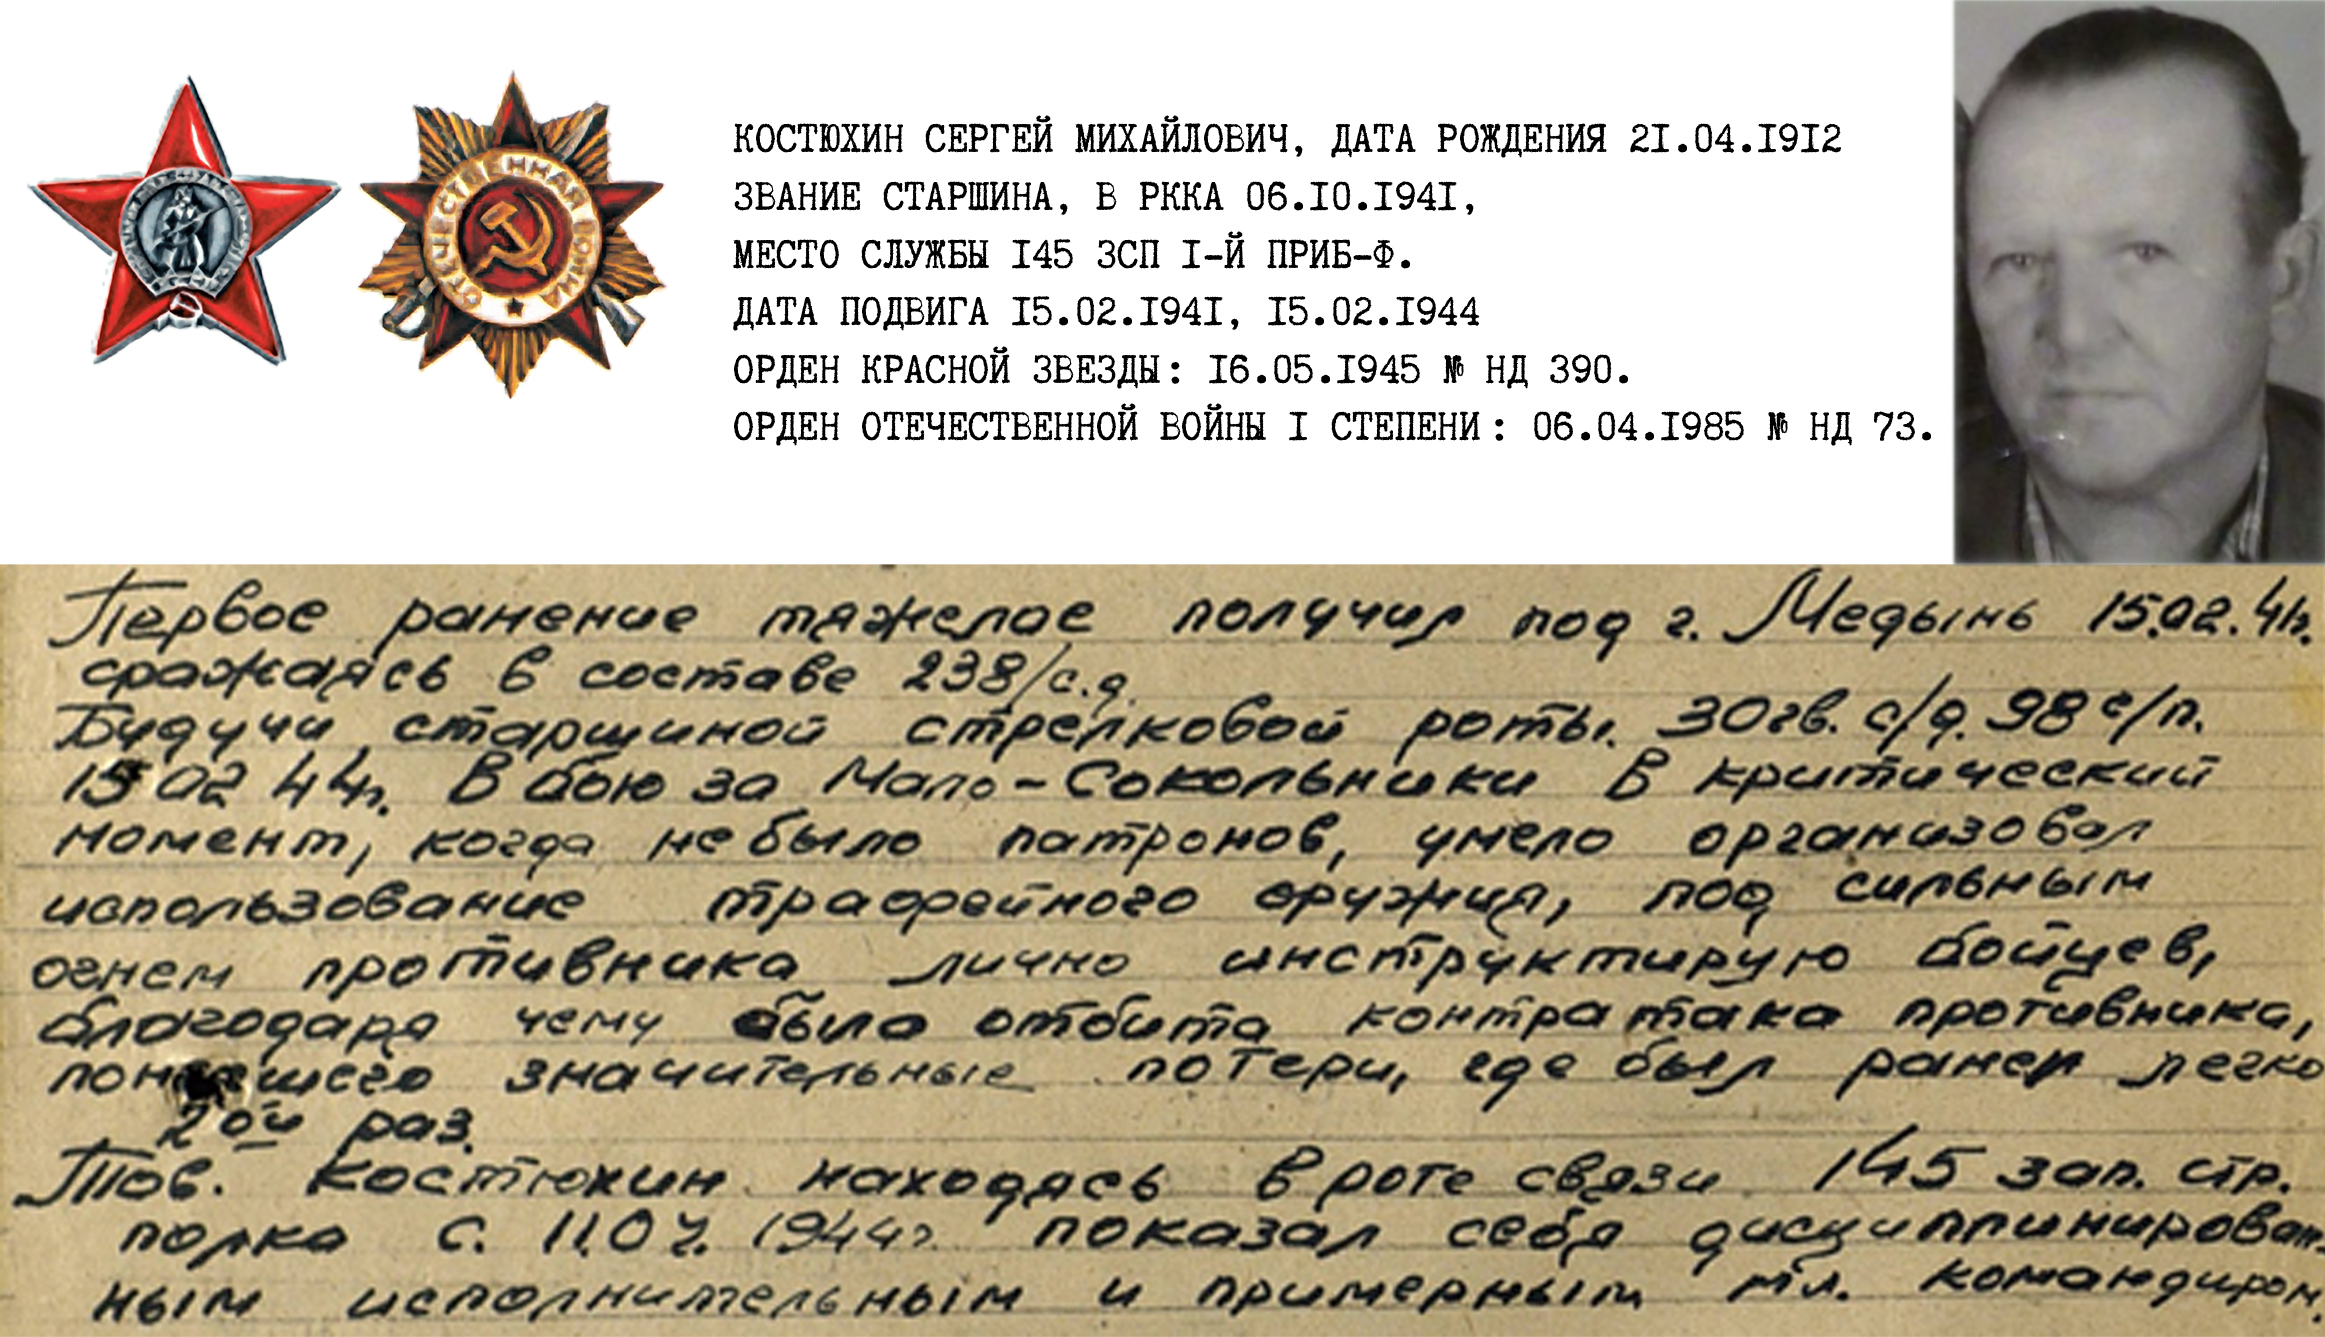 КОСТЮХИН СЕРГЕЙ МИХАЙЛОВИЧ, ДАТА РОЖДЕНИЯ 21.04.1912
ЗВАНИЕ СТАРШИНА, В РККА 06.10.1941,
МЕСТО СЛУЖБЫ 145 ЗСП I-Й ПРИБ-Ф.
ДАТА ПОДВИГА 15.02.1941, 15.02.1944
ОРДЕН КРАСНОЙ ЗВЕЗДЫ: 16.05.1945 № НД 390.
ОРДЕН ОТЕЧЕСТВЕННОЙ ВОЙНЫ I СТЕПЕНИ: 06.04.1985 № НД 73.
ОТЕЧЕСТВЕННАЯ ВОЙНА
Первое ранение тяжелое получил под г. Медынь 15.02.41г.
сражаясь в составе 238/с.д.
Будучи старшиной стрелковой роты. 30гв. с/д. 98 с/п.
15 02 44г. В бою за Мало-Сокольники В критический
момент, когда не было патронов, умело организовал
использование трафейного оружия, под сильным
огнем противника лично инструктирую бойцев,
благодаря чему была отбита контратака противника,
значительные потери, где был ранен легко
2ой раз.
Тов. Костюхин находясь в роте связи 145 зап. стр.
полка с. 1944г. показал себя дисциплинирован-
ным исполнительным и примерным мл. командиром.